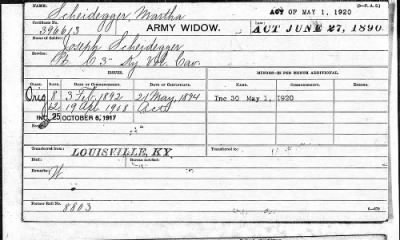 NAME: ACT OF MAY 1, 1920 (D.-P. A. G.)
Scheidegger, Martha
Certificate No. ARMY WIDOW. ACT JUNE 27, 1890
396613
Name of Soldier:
Joseph Scheidegger
Service:
B. C 3" Ky Vol. Cav.
ISSUES. MINORS—$2 PER MONTH ADDITIONAL.
CLASS. RATE. DATE OF COMMENCEMENT. DATE OF CERTIFICATE. NAME. COMMENCEMENT. ENDING.
Orig 8 3 Feb. 1892 21 May, 1894 Inc 30 May 1, 1920
12 19 Apl 1908 Act
INC. 25 OCTOBER 6, 1917
Transferred from Transferred to
LOUISVILLE, KY.
Died:
Remarks:
W
Former Roll No.
8803